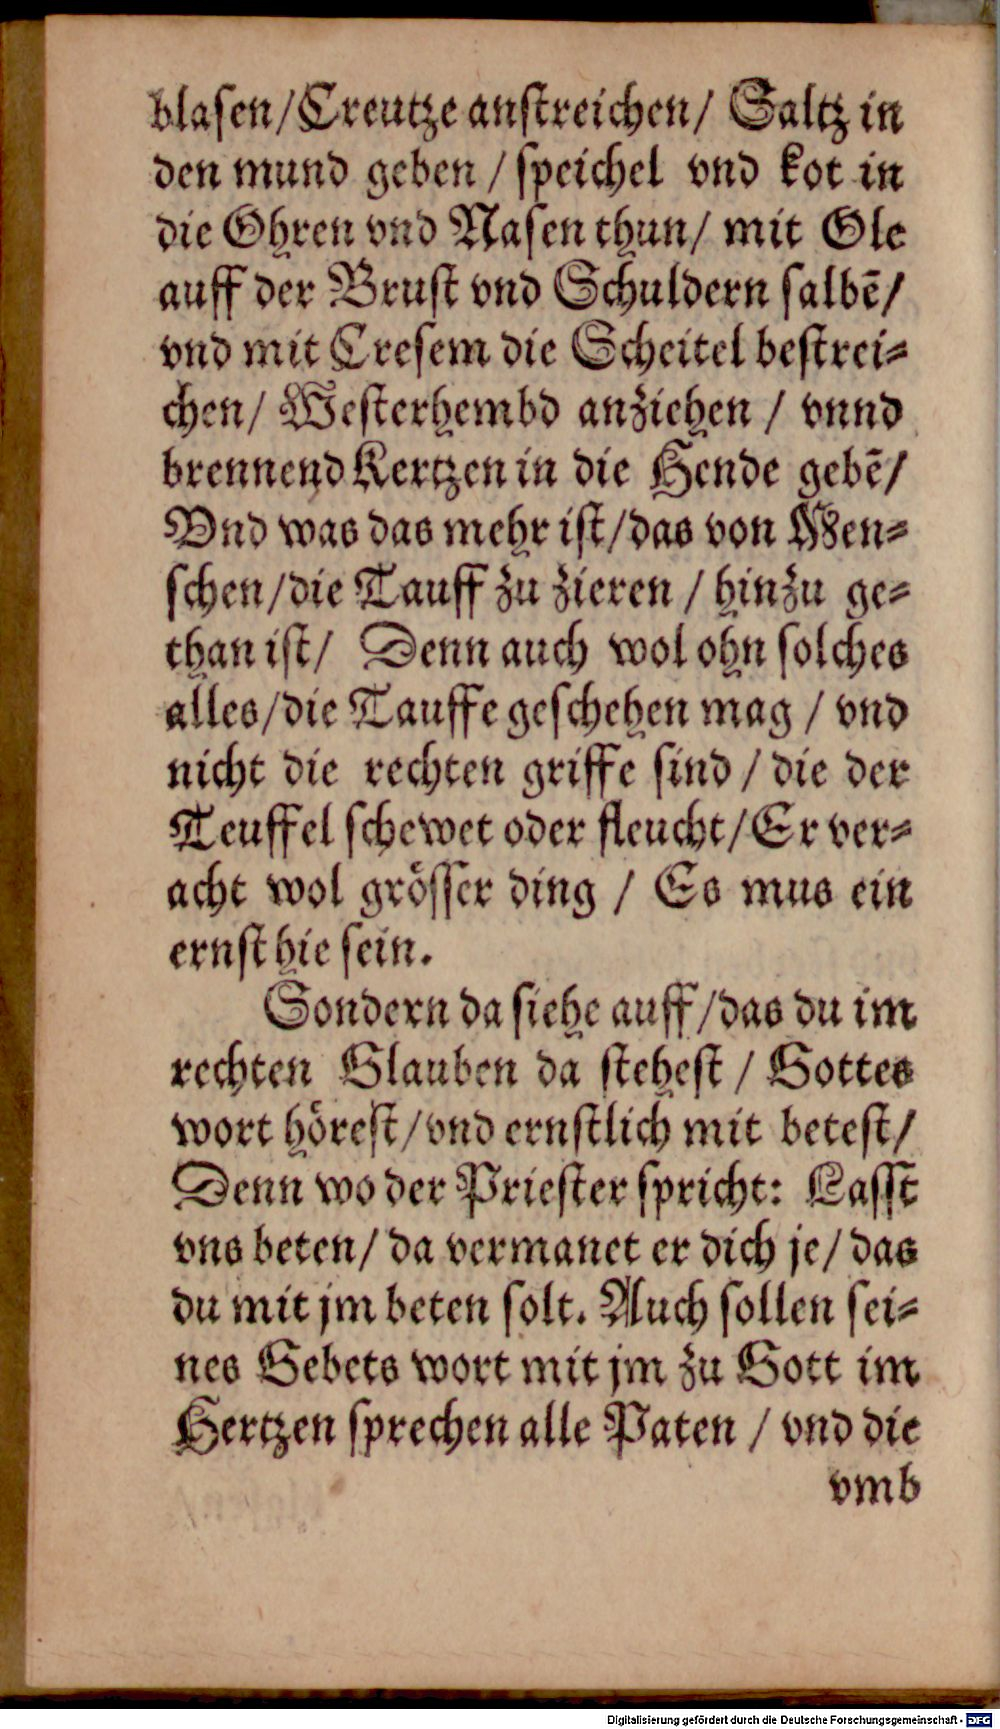 blasen/Creutze anstreichen/ Saltz in
den mund geben / speichel vnd kot in
die Ohren vnd Nasen thun/ mit Ole
auff der Brust vnd Schuldern salbē/
vnd mit Cresem die Scheitel bestrei=
chen/ Westerhembd anziehen / vnnd
brennend Kertzen in die Hende gebē/
Vnd was das mehr ist/das von Men=
schen/die Tauff zu zieren / hinzu ge=
than ist/ Denn auch wol ohn solches
alles/die Tauffe geschehen mag / vnd
nicht die rechten griffe sind / die der
Teuffel schewet oder fleucht/Er ver=
acht wol grösser ding / Es mus ein
ernst hie sein.
Sondern da siehe auff/das du im
rechten Glauben da stehest / Gottes
wort hörest/vnd ernstlich mit betest/
Denn wo der Priester spricht: Lasst
vns beten/ da vermanet er dich je/ das
du mit jm beten solt. Auch sollen sei=
nes Gebets wort mit jm zu Gott im
Hertzen sprechen alle Paten / vnd die
vmb
Digitalisierung gefördert durch die Deutsche Forschungsgemeinschaft - DFG